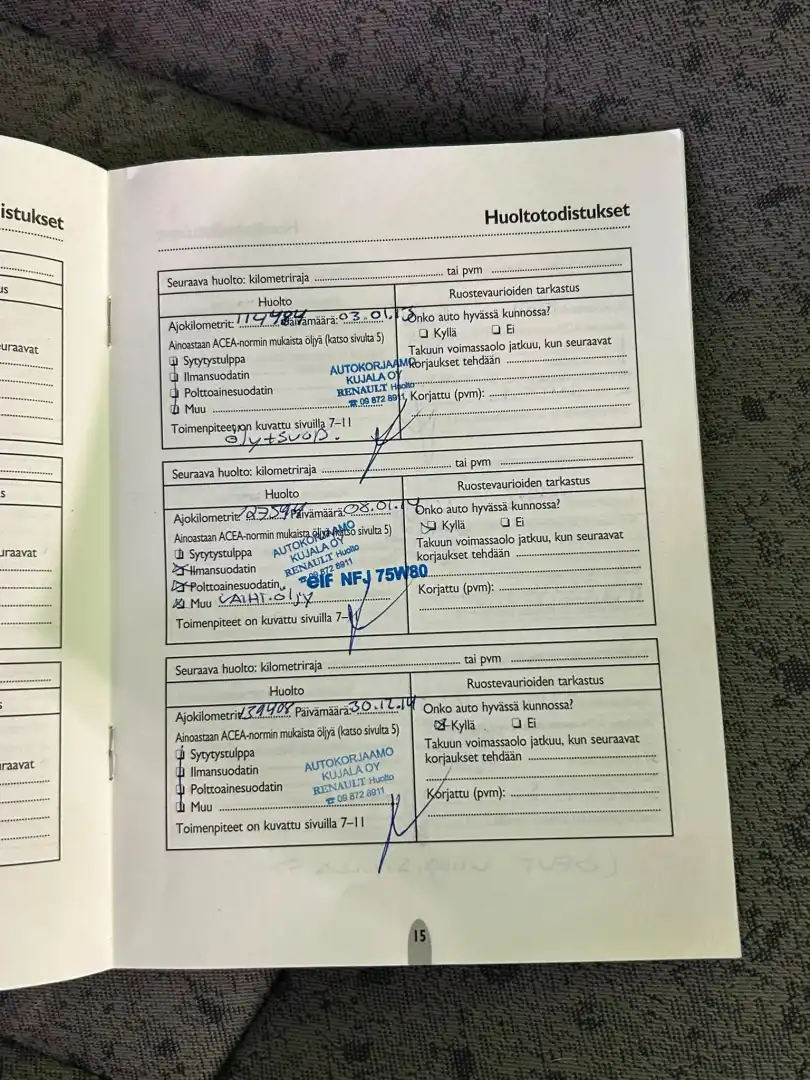 istukset
us
uraavat
s
uraavat
s
raavat
Huoltotodistukset
Seuraava huolto: kilometriraja tai pvm
Huolto
Ruostevaurioiden tarkastus
Ajokilometrit: 114484 Päivämäärä: 03.01.13
Onko auto hyvässä kunnossa?
Ainoastaan ACEA-normin mukaista öljyä (katso sivulta 5)
Kyllä Ei
Sytytystulppa
Takuun voimassaolo jatkuu, kun seuraavat
korjaukset tehdään
Ilmansuodatin
AUTOKORJAAMO
KUJALA OY
RENAULT Huolto
☎ 09 872 8911
Polttoainesuodatin
Korjattu (pvm):
Muu
Toimenpiteet on kuvattu sivuilla 7–11
Seuraava huolto: kilometriraja tai pvm
Huolto
Ruostevaurioiden tarkastus
Ajokilometrit: Päivämäärä: 08.01.14
Onko auto hyvässä kunnossa?
Ainoastaan ACEA-normin mukaista öljyä (katso sivulta 5)
Kyllä Ei
AUTOKORJAAMO
KUJALA OY
RENAULT Huolto
☎ 09 872 8911
Sytytystulppa
Takuun voimassaolo jatkuu, kun seuraavat
korjaukset tehdään
Ilmansuodatin
Polttoainesuodatin
elf NFJ 75W80
Korjattu (pvm):
Muu VAIHT.ÖLJY
Toimenpiteet on kuvattu sivuilla 7–
Seuraava huolto: kilometriraja tai pvm
Huolto
Ruostevaurioiden tarkastus
Ajokilometrit: 139408 Päivämäärä: 30.12.14
Onko auto hyvässä kunnossa?
Ainoastaan ACEA-normin mukaista öljyä (katso sivulta 5)
Kyllä Ei
Sytytystulppa
Takuun voimassaolo jatkuu, kun seuraavat
korjaukset tehdään
Ilmansuodatin
AUTOKORJAAMO
KUJALA OY
RENAULT Huolto
☎ 09 872 8911
Polttoainesuodatin
Korjattu (pvm):
Muu
Toimenpiteet on kuvattu sivuilla 7–11
15